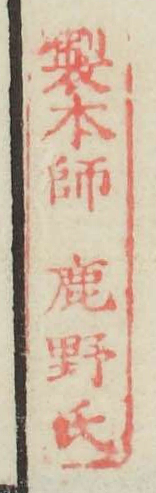 製本師 鹿野氏